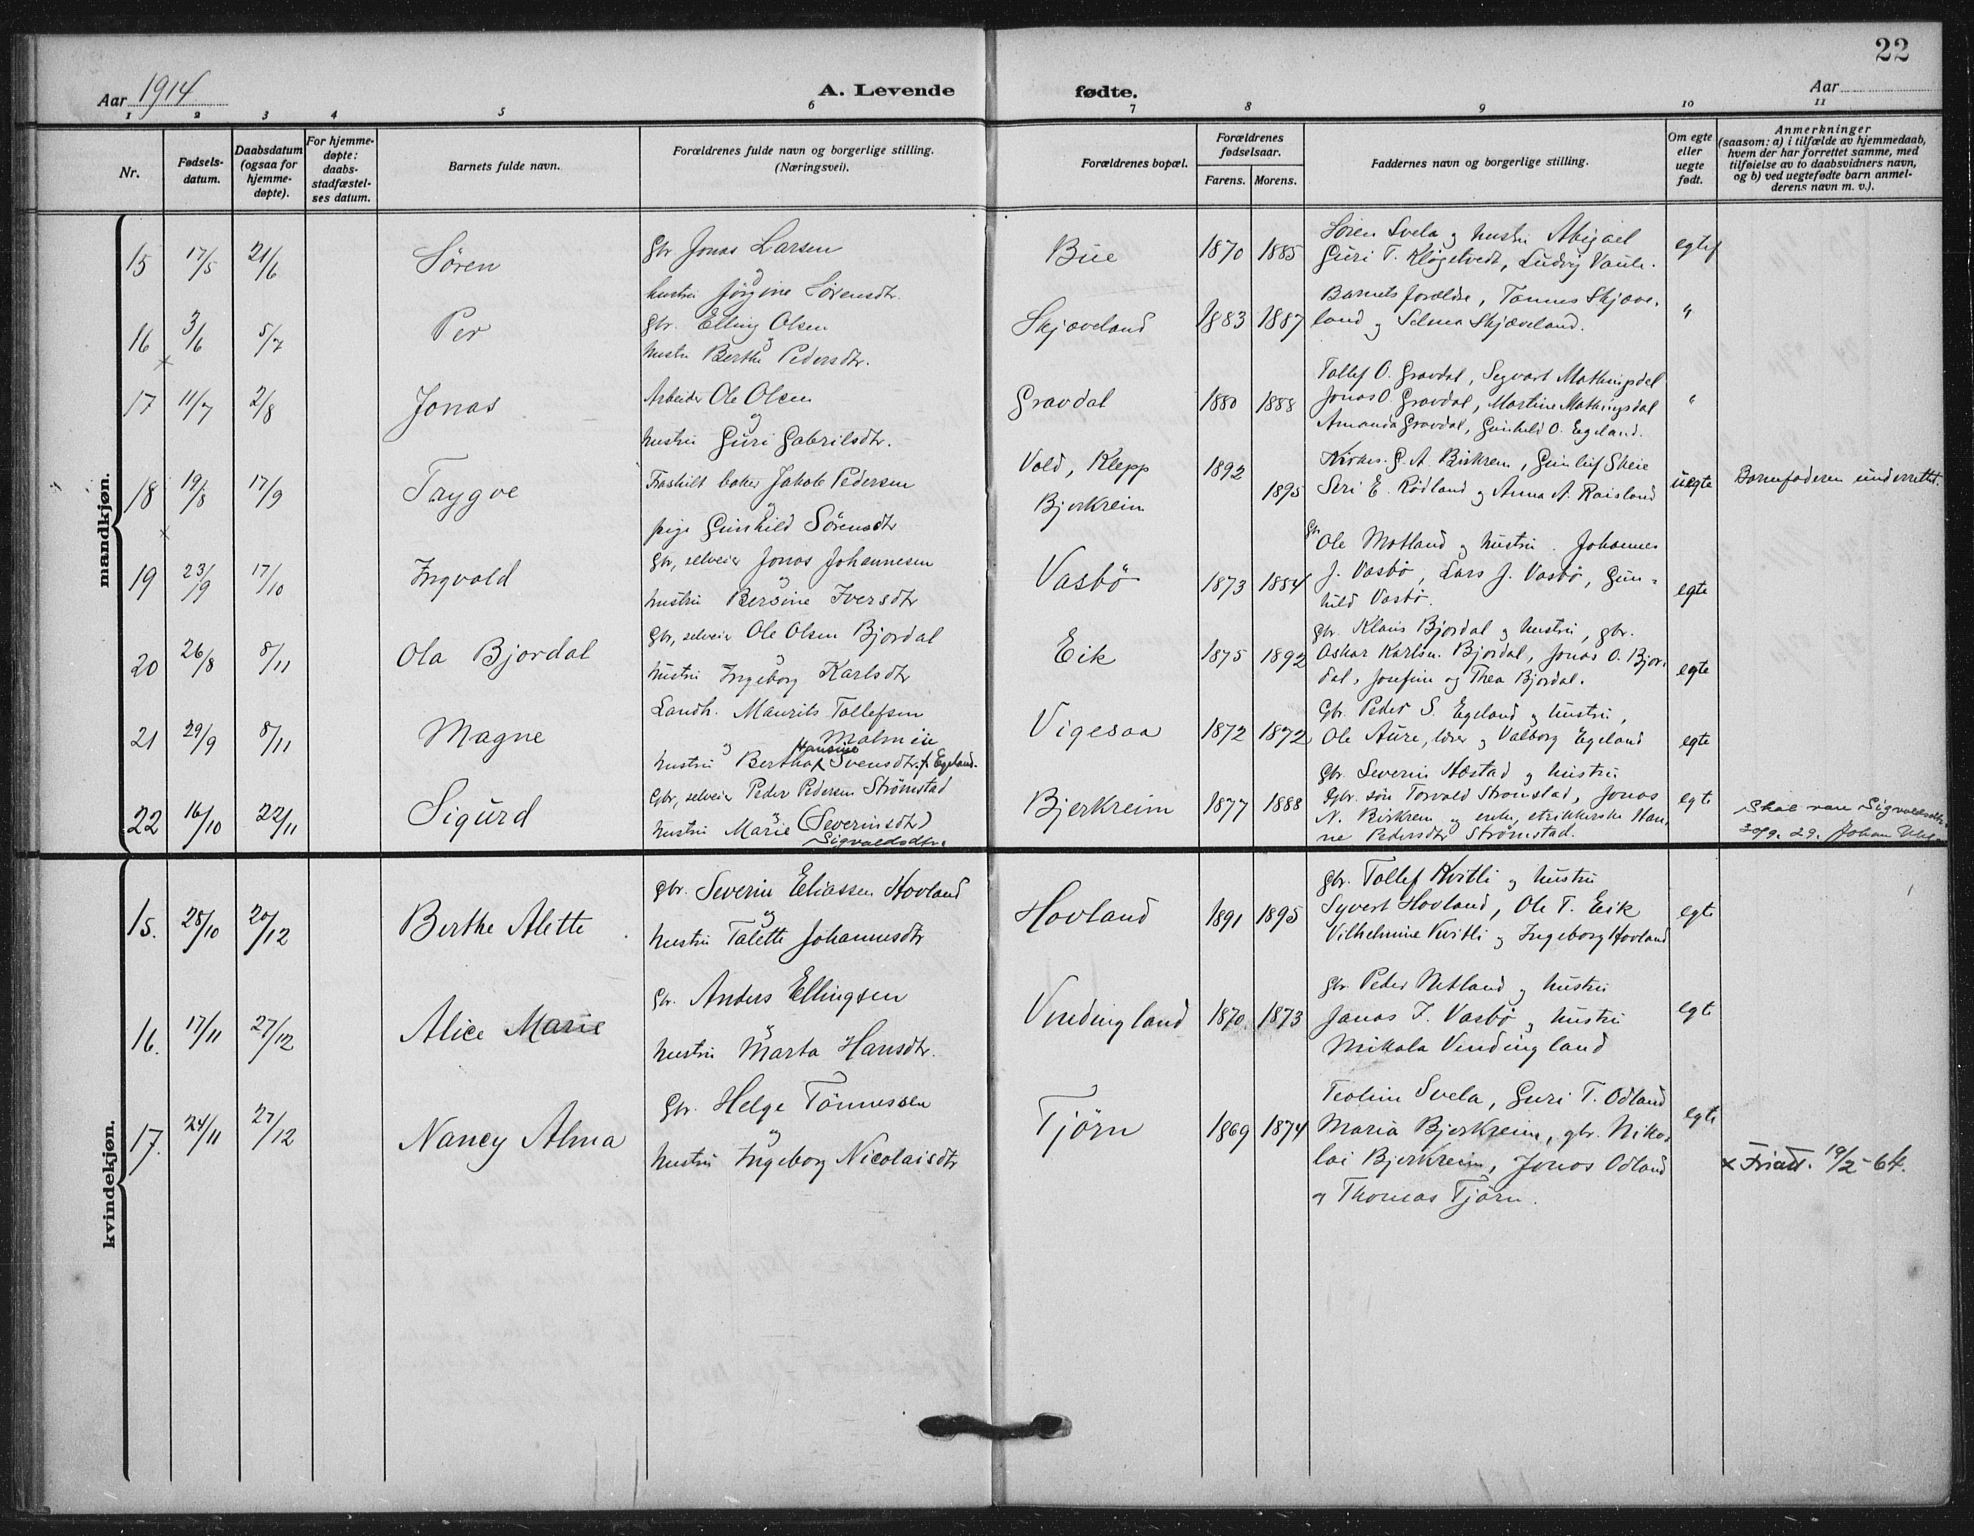 22
Aar 1914
A. Levende fødte.
Aar
1 2 3 4 5 6 7 8 9 10 11
Nr.
Fødsels-
datum.
Daabsdatum
(ogsaa for
hjemme-
døpte).
For hjemme-
døpte:
daabs-
stadfæstel-
ses datum.
Barnets fulde navn.
Forældrenes fulde navn og borgerlige stilling.
(Næringsvei).
Forældrenes bopæl.
Forældrenes
fødselsaar.
Farens. Morens.
Faddernes navn og borgerlige stilling.
Om egte
eller
uegte
født.
Anmerkninger
(saasom: a) i tilfælde av hjemmedaab,
hvem der har forrettet samme, med
tilføielse av to daabsvidners navn,
og b) ved uegtefødte barn anmel-
derens navn m. v.).
mandkjøn.
15 17/5 21/6 Søren
Gbr Jonas Larsen
og
hustru Jørgine Sørensdtr.
Bue 1870 1885
Søren Svela og hustru Abigael
Guri T. Kløgetvedt, Ludvig Vaule.
egtef
16 3/6 5/7 Per
Gbr. Elling Olsen
og
hustru Berthe Pedersdtr.
Skjæveland 1883 1887
Barnets forældre, Tønnes Skjæve-
land og Selma Skjæveland.
"
×
17 11/7 2/8 Jonas
Arbeider Ole Olsen
og
hustru Guri Gabrilsdtr.
Gravdal 1880 1888
Tollef O. Gravdal, Segvart Mathingsdal
Jonas O. Gravdal, Martine Mathingsdal
Amanda Gravdal, Gunhild O. Egeland.
"
18 19/8 17/9 Trygve
Fraskilt baker Jakob Pedersen
og
pige Gunhild Sørensdtr
Vold, Klepp
Bjerkreim
1892 1895
Kirkes. G. A. Birkrem, Gunleif Skeie
Seri E. Rødland og Anna A. Raisland
uegte
Barnefaderen underrettet.
×
19 23/9 17/10 Ingvald
Gbr, selveier Jonas Johannesen
og
hustru Bersine Iversdtr
Vasbø 1873 1884
Gbr Ole Motland og hustru. Johannes
J. Vasbø, Lars J. Vasbø, Gun-
hild Vasbø.
egte
20 26/8 8/11 Ola Bjordal
Gbr, selveier Ole Olsen Bjordal
og
hustru Ingeborg Karlsdtr
Eik 1875 1892
gbr. Klaus Bjordal og hustru, gbr.
Oskar Karlsen Bjordal, Jonas O. Bjor-
dal, Josefine og Thea Bjordal.
egte
21 29/9 8/11 Magne
Landh. Maurits Tollefsen
og Malmein
hustru Bertha Hansine Svensdtr. f. Egeland.
Vigesaa 1872 1872
Gbr. Peder S. Egeland og hustru,
Ole Aure, lærer og Valborg Egeland
egte
22 16/10 22/11 Sigurd
Gbr, selveier Peder Pedersen Strømstad
og
hustru Marie (Severinsdtr)
Sigvaldsdtr.
Bjerkreim 1877 1888
Gbr. Severin Hæstad og hustru
Gbr. søn Torvald Strømstad, Jonas
N. Birkrem og enke, strikkerske Han-
ne Pedersdtr Strømstad.
egte
Skal være Sigvaldsdtr.
20/9. 29. Johan
kvindekjøn.
15. 28/10 20/12 Berthe Alette
gbr. Severin Eliassen Hovland
og
hustru Talette Johannesdtr
Hovland 1891 1895
gbr. Tollef Kvitli og hustru
Syvert Hovland, Ole T. Eik
Vilhelmine Kvitli og Ingeborg Hovland
egte
16. 17/11 27/12 Alice Marie
gbr. Anders Ellingsen
og
hustru Marta Hansdtr.
Vendingland 1870 1873
gbr. Peder Netland og hustru
Jonas I. Vasbø og hustru
Mikala Vendingland
egte
17. 24/11 27/12 Nancy Alma
Gbr. Helge Tønnessen
og
hustru Ingeborg Nicolaisdtr
Tjørn 1869 1874
Teoline Svela, Guri T. Odland
Maria Bjerkreim, gbr. Niko-
lai Bjerkreim, Jonas Odland
og Thomas Tjørn.
egte
× Friatt. 19/2-64.